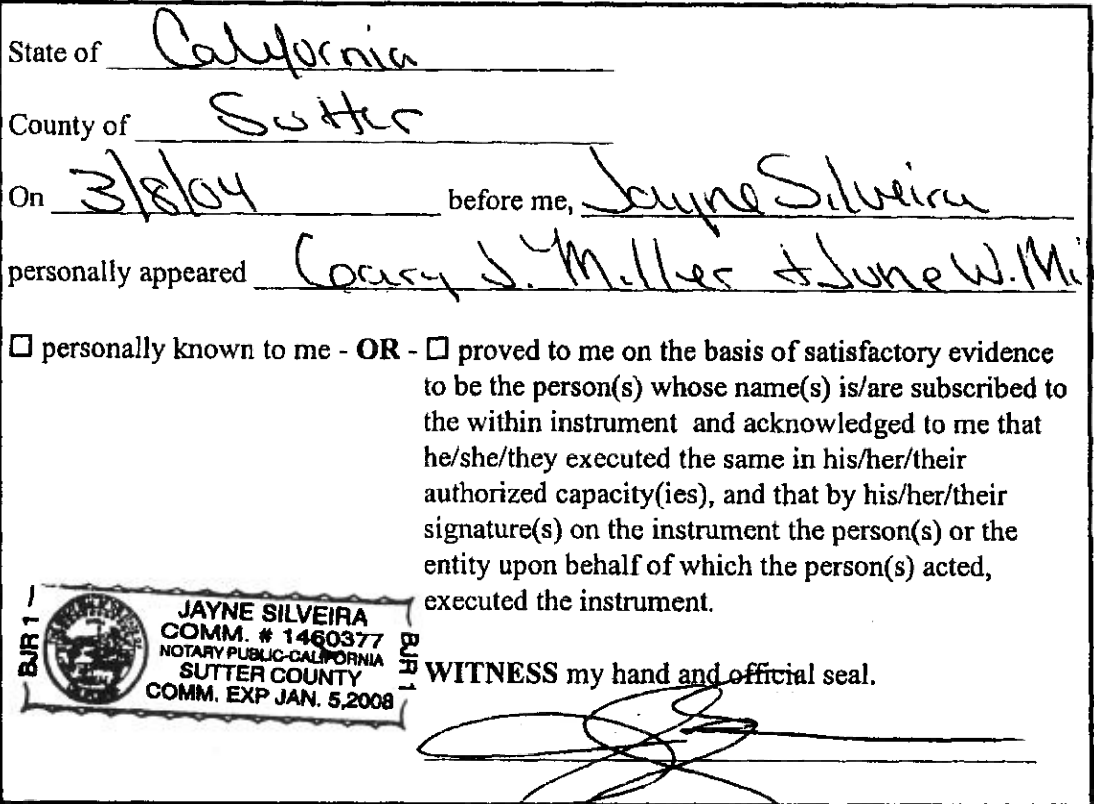 State of California
County of Sutter
On 3/8/04 before me, Jayne Silveira
personally appeared Gary J. Miller & June W. Mi
☐ personally known to me - OR - ☐ proved to me on the basis of satisfactory evidence
to be the person(s) whose name(s) is/are subscribed to
the within instrument and acknowledged to me that
he/she/they executed the same in his/her/their
authorized capacity(ies), and that by his/her/their
signature(s) on the instrument the person(s) or the
entity upon behalf of which the person(s) acted,
executed the instrument.
BJR 1
JAYNE SILVEIRA
COMM. # 1460377
NOTARY PUBLIC-CALIFORNIA
SUTTER COUNTY
COMM. EXP JAN. 5,2008
BJR 1
WITNESS my hand and official seal.